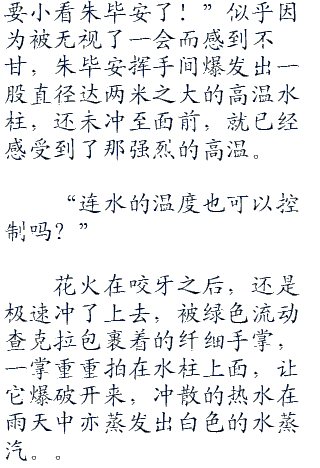 要小看朱毕安了！”似乎因
为被无视了一会而感到不
甘，朱毕安挥手间爆发出一
股直径达两米之大的高温水
柱，还未冲至面前，就已经
感受到了那强烈的高温。
“连水的温度也可以控
制吗？”
花火在咬牙之后，还是
极速冲了上去，被绿色流动
查克拉包裹着的纤细手掌，
一掌重重拍在水柱上面，让
它爆破开来，冲散的热水在
雨天中亦蒸发出白色的水蒸
汽。。